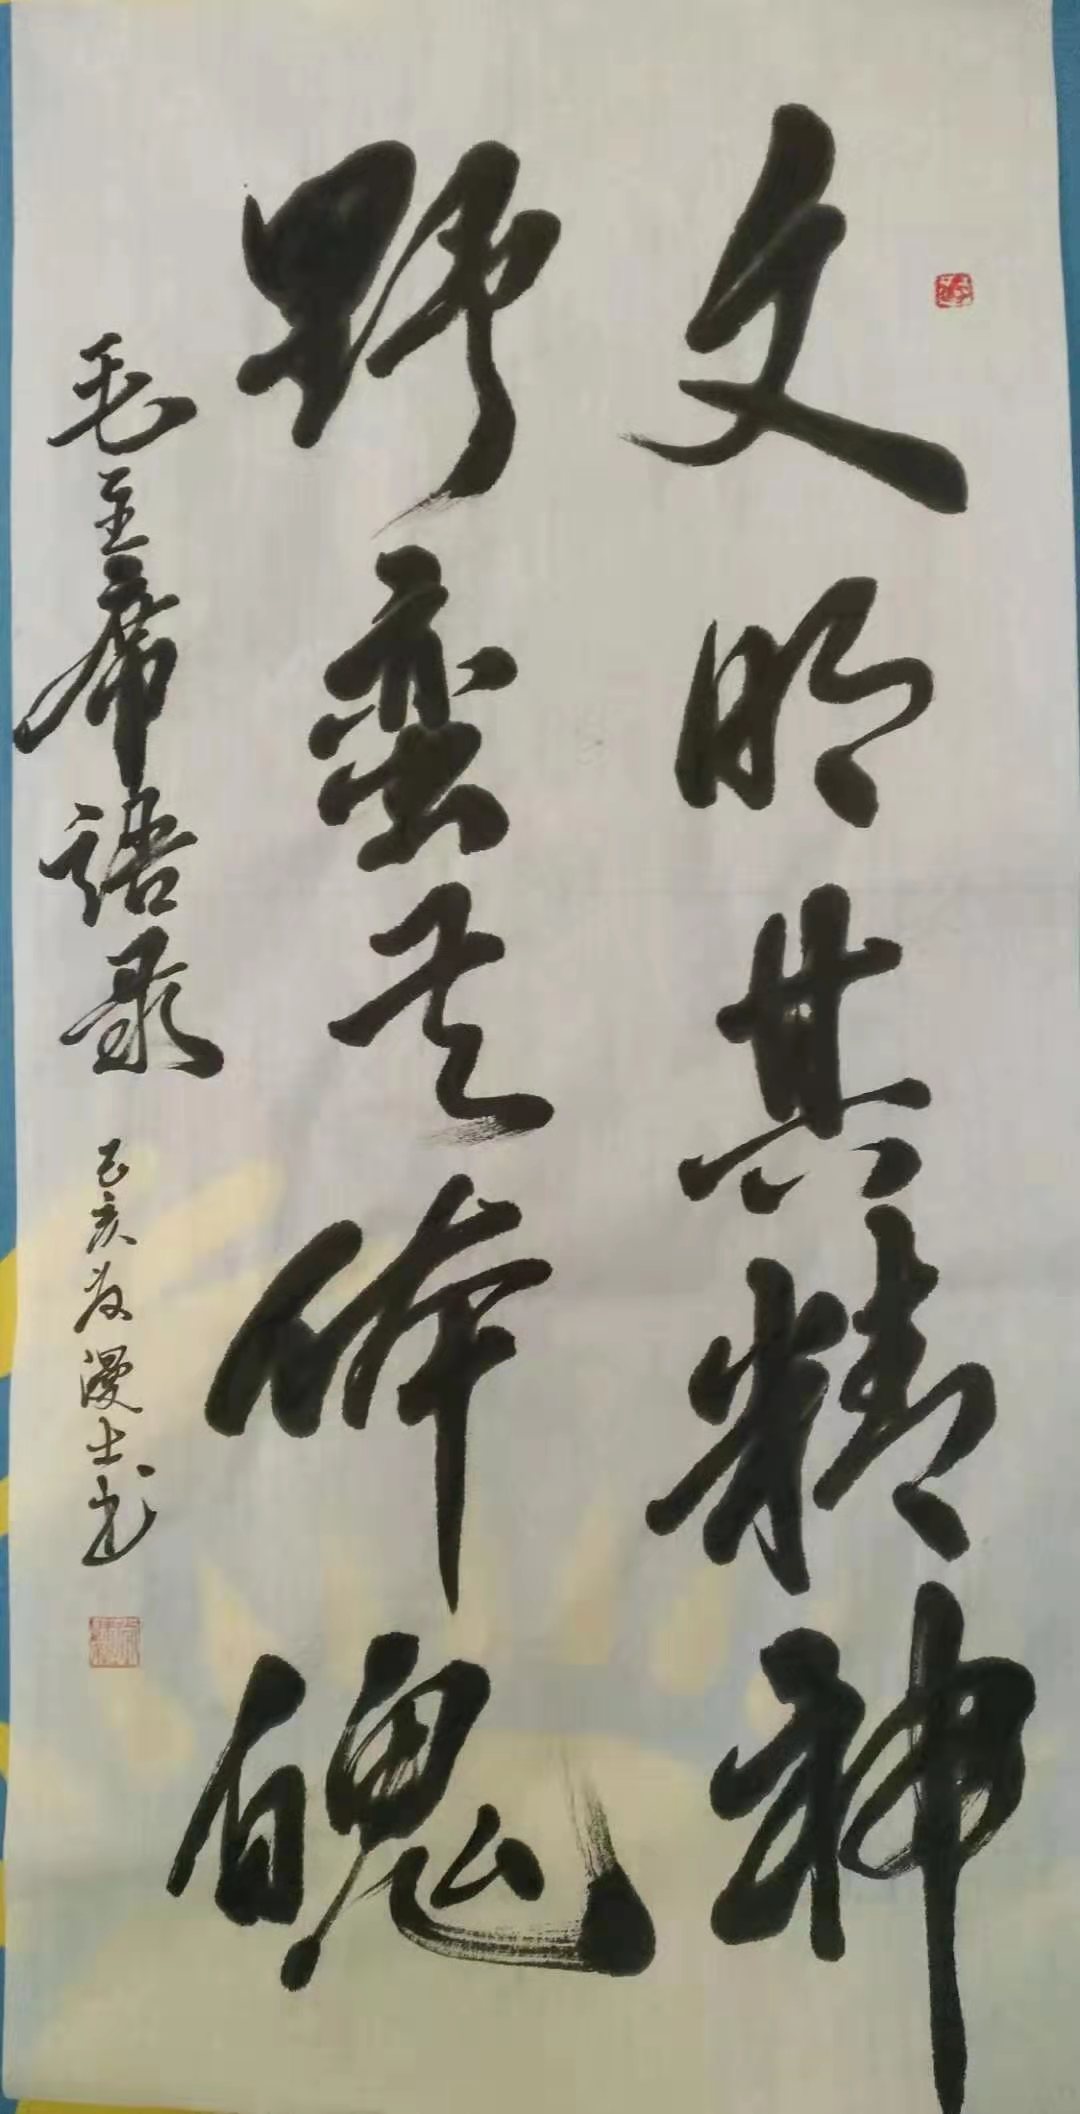 文明其精神
野蛮其体魄
毛主席语录
己亥春漫士书